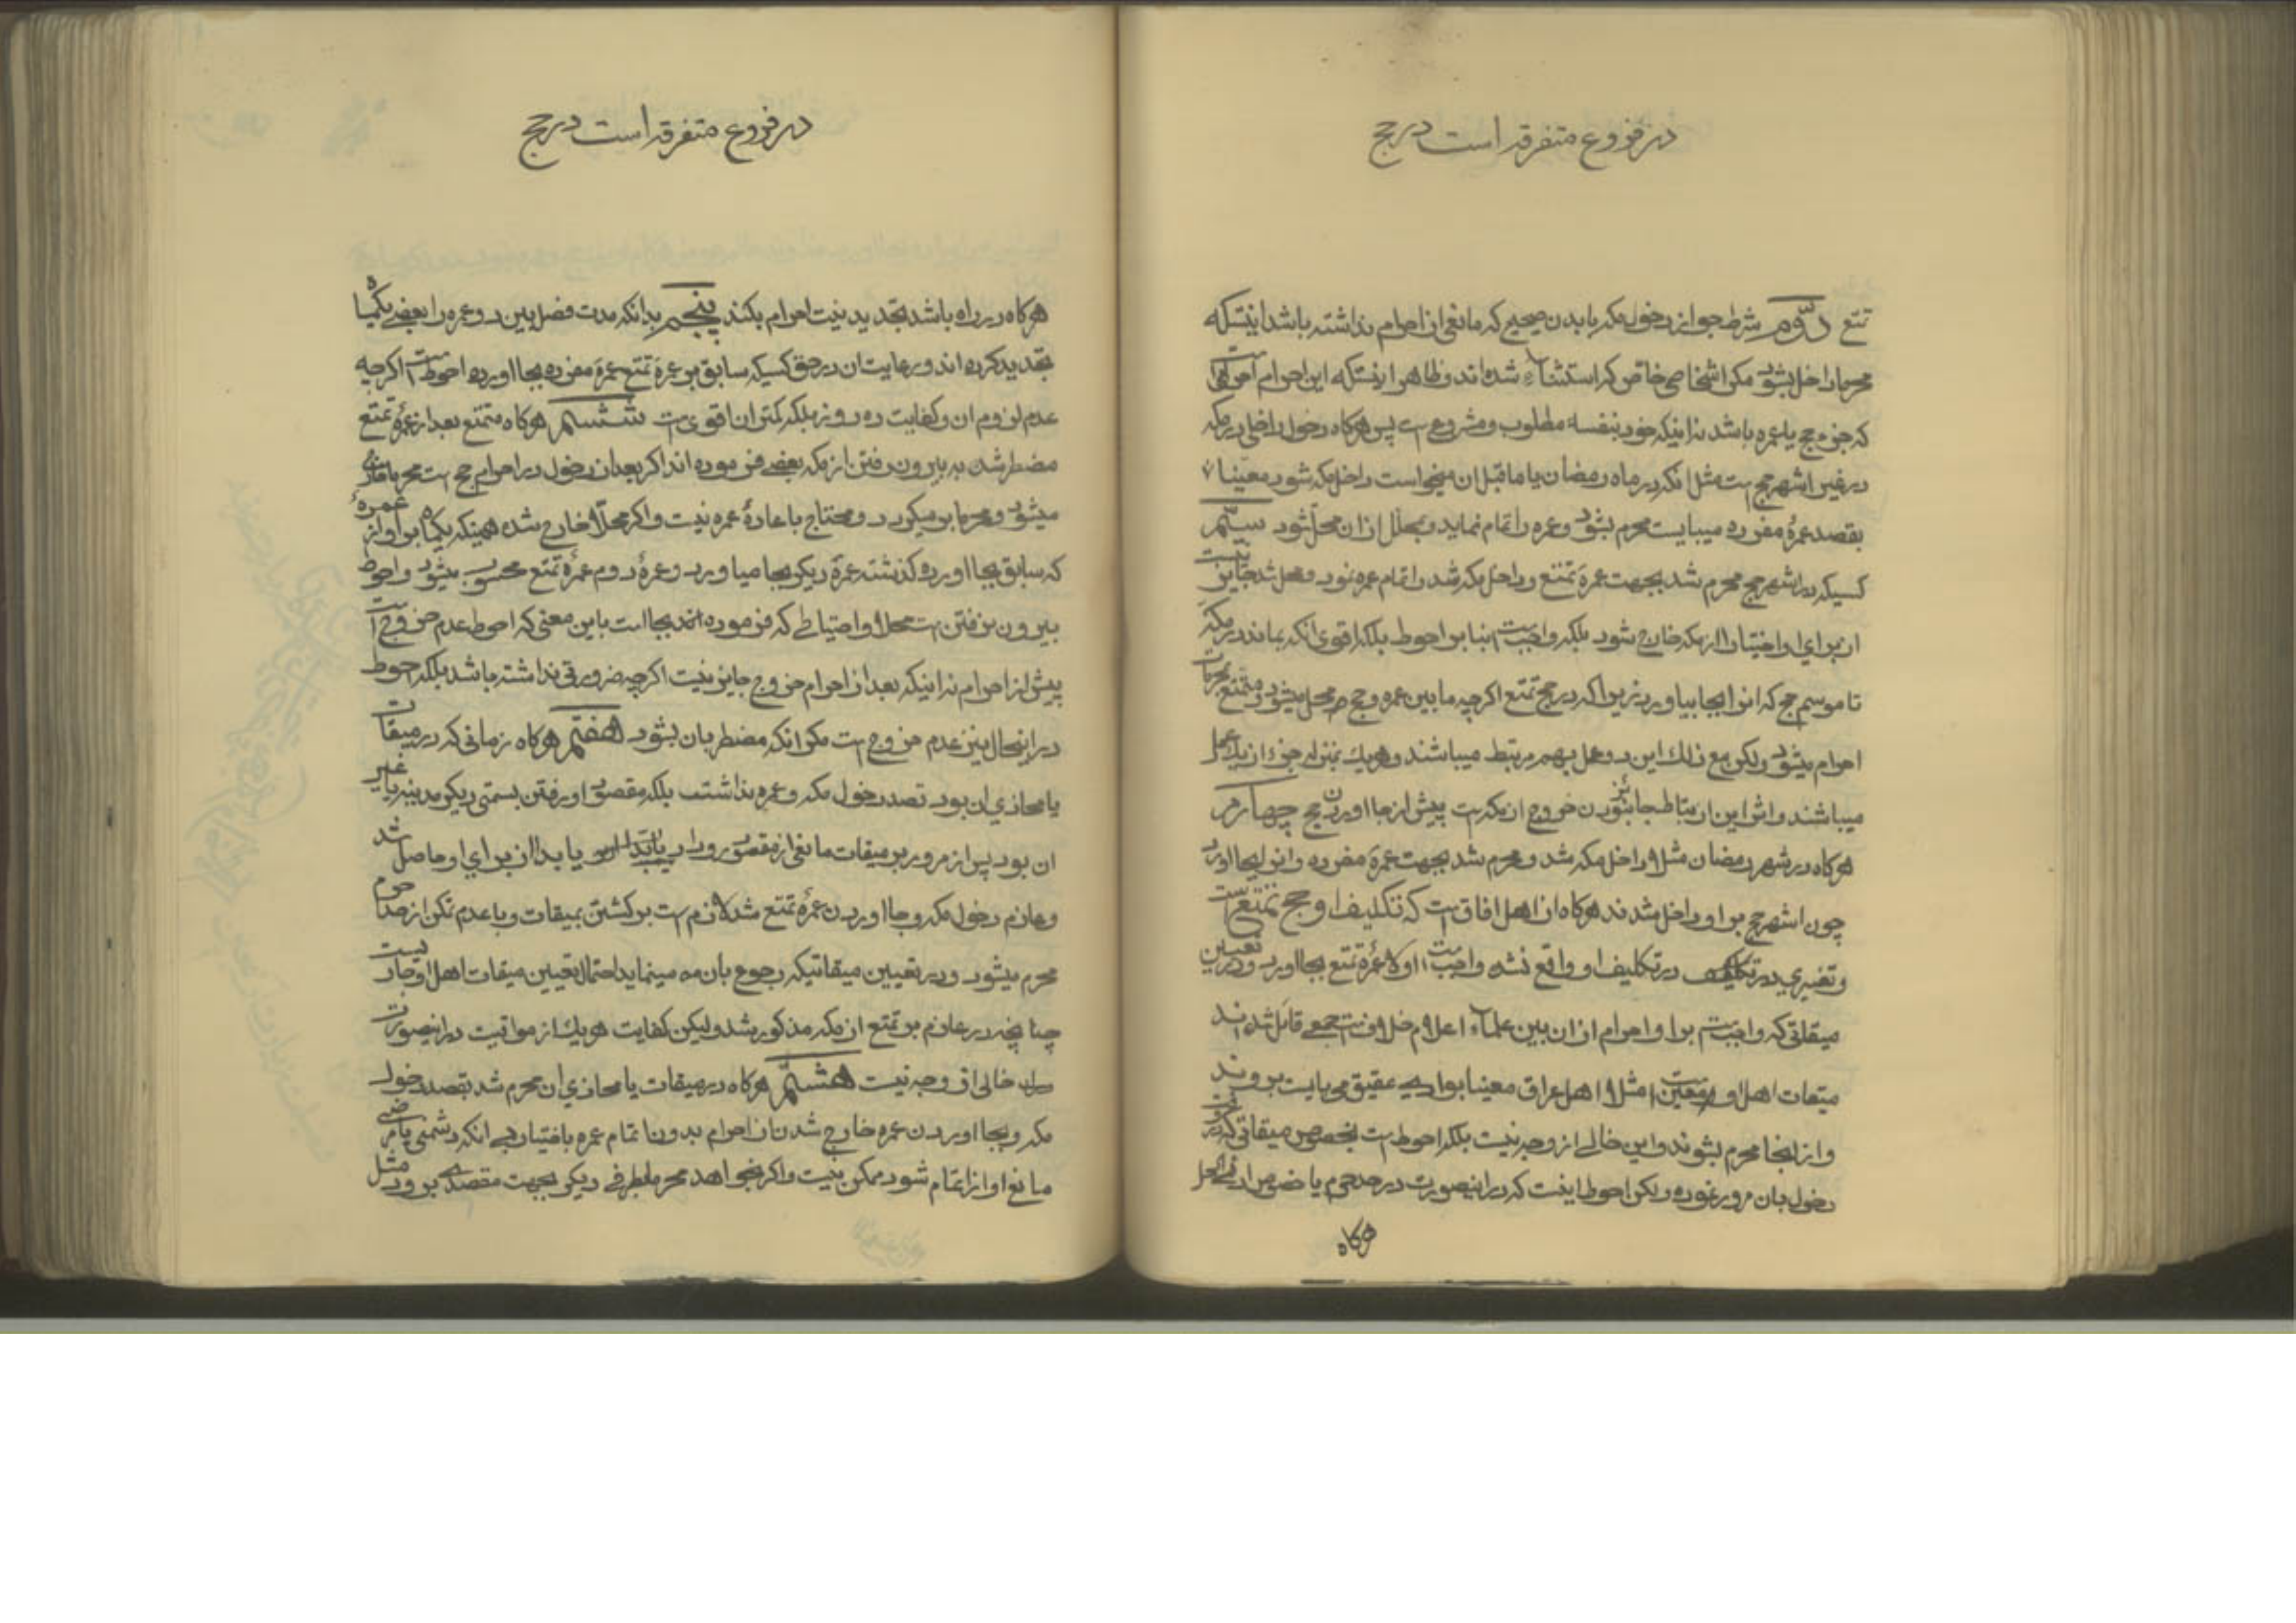 در فروع متفرقه است در حج
تمتع دوّم شرط جواز دخول مکه با بدن صحیح که مانعی از احرام نداشته باشد اینستکه
محرما داخل بشود مکر اشخاص خاص که استثناء شده اند و ظاهر اینستکه این احرام احرامی است
که جزء حج یا عمره باشد نه اینکه خود بنفسه مطلوب و مشروع است پس هرکاه دخول داخل در مکه
در غیر اشهر حج است مثل انکه در ماه رمضان یا ماقبل ان میخواست داخل مکه شود معینا
بقصد عمرۀ مفرده میبایست محرم بشود و عمره را تمام نماید و محلل از ان محل شود سیّم
کسیکه در اشهر حج محرم شد بجهت عمرۀ تمتع و داخل مکه شد و اتمام عمره نمود و محل شد جایز نیست
از برای او اختیارا از مکه خارج شود بلکه واجبست بنا بر احوط بلکه اقوی انکه بماند در مکه
تا موسم حج که انرا بجا بیاورد زیرا که در حج تمتع اکرچه مابین عمره و حج محل میشود و متمتع بمحرمات
احرام میشود ولکن مع ذلک این دو عمل بهم مرتبط میباشند و هر یک بمنزله جزء از یک عمل
میباشند و اثر این ارتباط جایز نبودن خروج از مکه است پیش از بجا اوردن حج چهارم
هرکاه در شهر رمضان مثلا داخل مکه شد و محرم شد بجهت عمرۀ مفرده و انرا بجا اورد
چون اشهر حج بر او داخل شدند هرکاه از اهل افاق است که تکلیف او حج تمتع است
و تغییری در تکلیف او واقع نشده واجبست اولا عمرۀ تمتع بجا اورد و در تعیین این
میقاتی که واجبست بر او احرام از ان بین علماء اعلام خلافست جمعی قائل شده اند
میقات اهل او معین است مثلا اهل عراق معینا بوادی عقیق می بایست بروند
و از انجا محرم بشوند و این خالی از وجه نیست بلکه احوط است بخصوص میقاتی که در وقت
دخول بان مرور نموده ولکن احوط اینست که در اینصورت در حد حرم یا خصوص ادنی الحل
هرکاه
در فروع متفرقه است در حج
هرکاه در راه باشد تجدید نیت احرام بکند پنجم بدانکه مدت فصل بین دو عمره را بعضی یکماه
تحدید کرده اند و رعایت ان در حق کسیکه سابق بر عمرۀ تمتع عمرۀ مفرده بجا اورده احوط است اکرچه
عدم لزوم ان و کفایت ده روز بلکه کمتر ان اقوی است ششم هرکاه متمتع بعد از عمرۀ تمتع
مضطر شد به بیرون رفتن از مکه بعضی فرموده اند اکر بعد از دخول در احرام حج است محرما خارج
میشود و محرما بر میکردد و محتاج باعادۀ عمره نیست و اکر محلّا خارج شده همینکه یکماه بر او از عمرۀ
که سابق بجا اورده کذشته عمرۀ دیکر بجا میاورد و عمرۀ دوم عمرۀ تمتع محسوب میشود و احوط
بیرون نرفتن است محلا و احتیاطی که فرموده اند بجا است باین معنی که احوط عدم خروج است
پیش از احرام نه اینکه بعد از احرام خروج جایز نیست اکرچه ضرورتی نداشته باشد بلکه احوط
در اینحال نیز عدم خروج است مکر انکه مضطر بان بشود هفتم هرکاه زمانی که در میقات
یا محاذی ان بود قصد دخول مکه و عمره نداشت بلکه مقصود او رفتن بسمتی دیکر مدینه یا غیر
ان بود پس از مرور بر میقات مانعی از مقصود رو داد یا بدا از برای او حاصل شد
و عازم دخول مکه و بجا اوردن عمرۀ تمتع شد لازم است برکشتن بمیقات و با عدم تمکن از حد حرم
محرم میشود و در تعیین میقاتیکه رجوع بان مینماید احتمال تعیین میقات اهل او جاریست
چنانچه در عازم بر تمتع از مکه مذکور شد ولیکن کفایت هر یک از مواقیت در اینصورت
خالی از وجه نیست هشتم هرکاه در میقات یا محاذی ان محرم شد بقصد دخول
مکه و بجا اوردن عمره خارج شدن از احرام بدون اتمام عمره باختیار بی انکه دشمنی یا مرضی
مانع او از اتمام شود ممکن نیست و اکر بخواهد محرما بطرفی دیکر بجهت مقصدی برود مثل